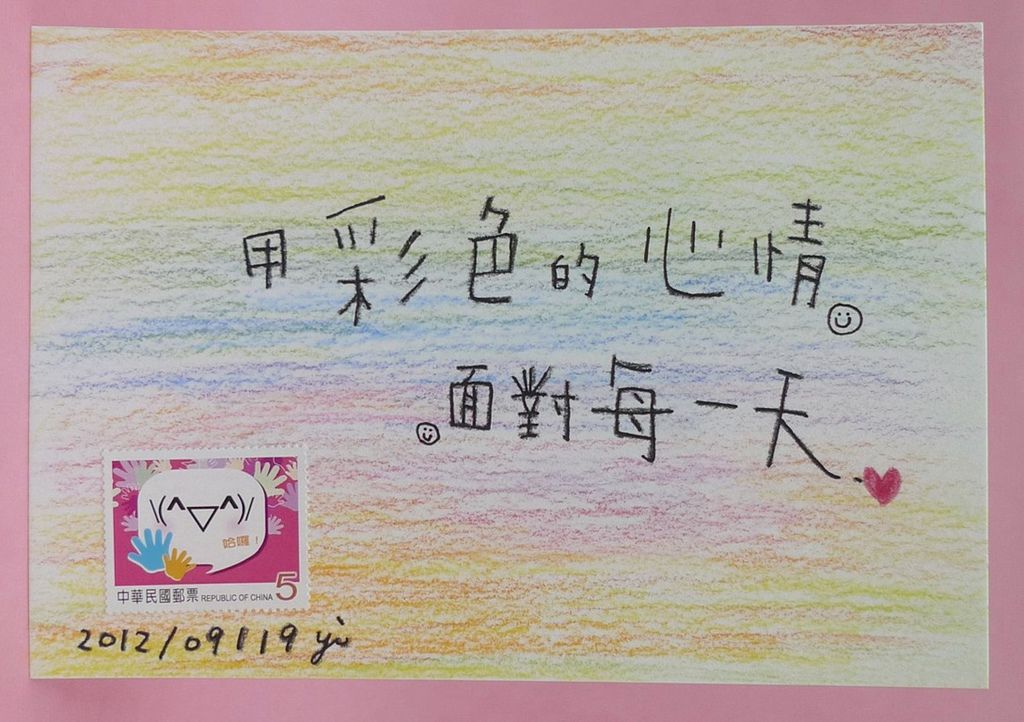 用彩色的心情
面對每一天
\(^▽^)/
哈囉！
中華民國郵票 REPUBLIC OF CHINA 5
2012/09/19 yu